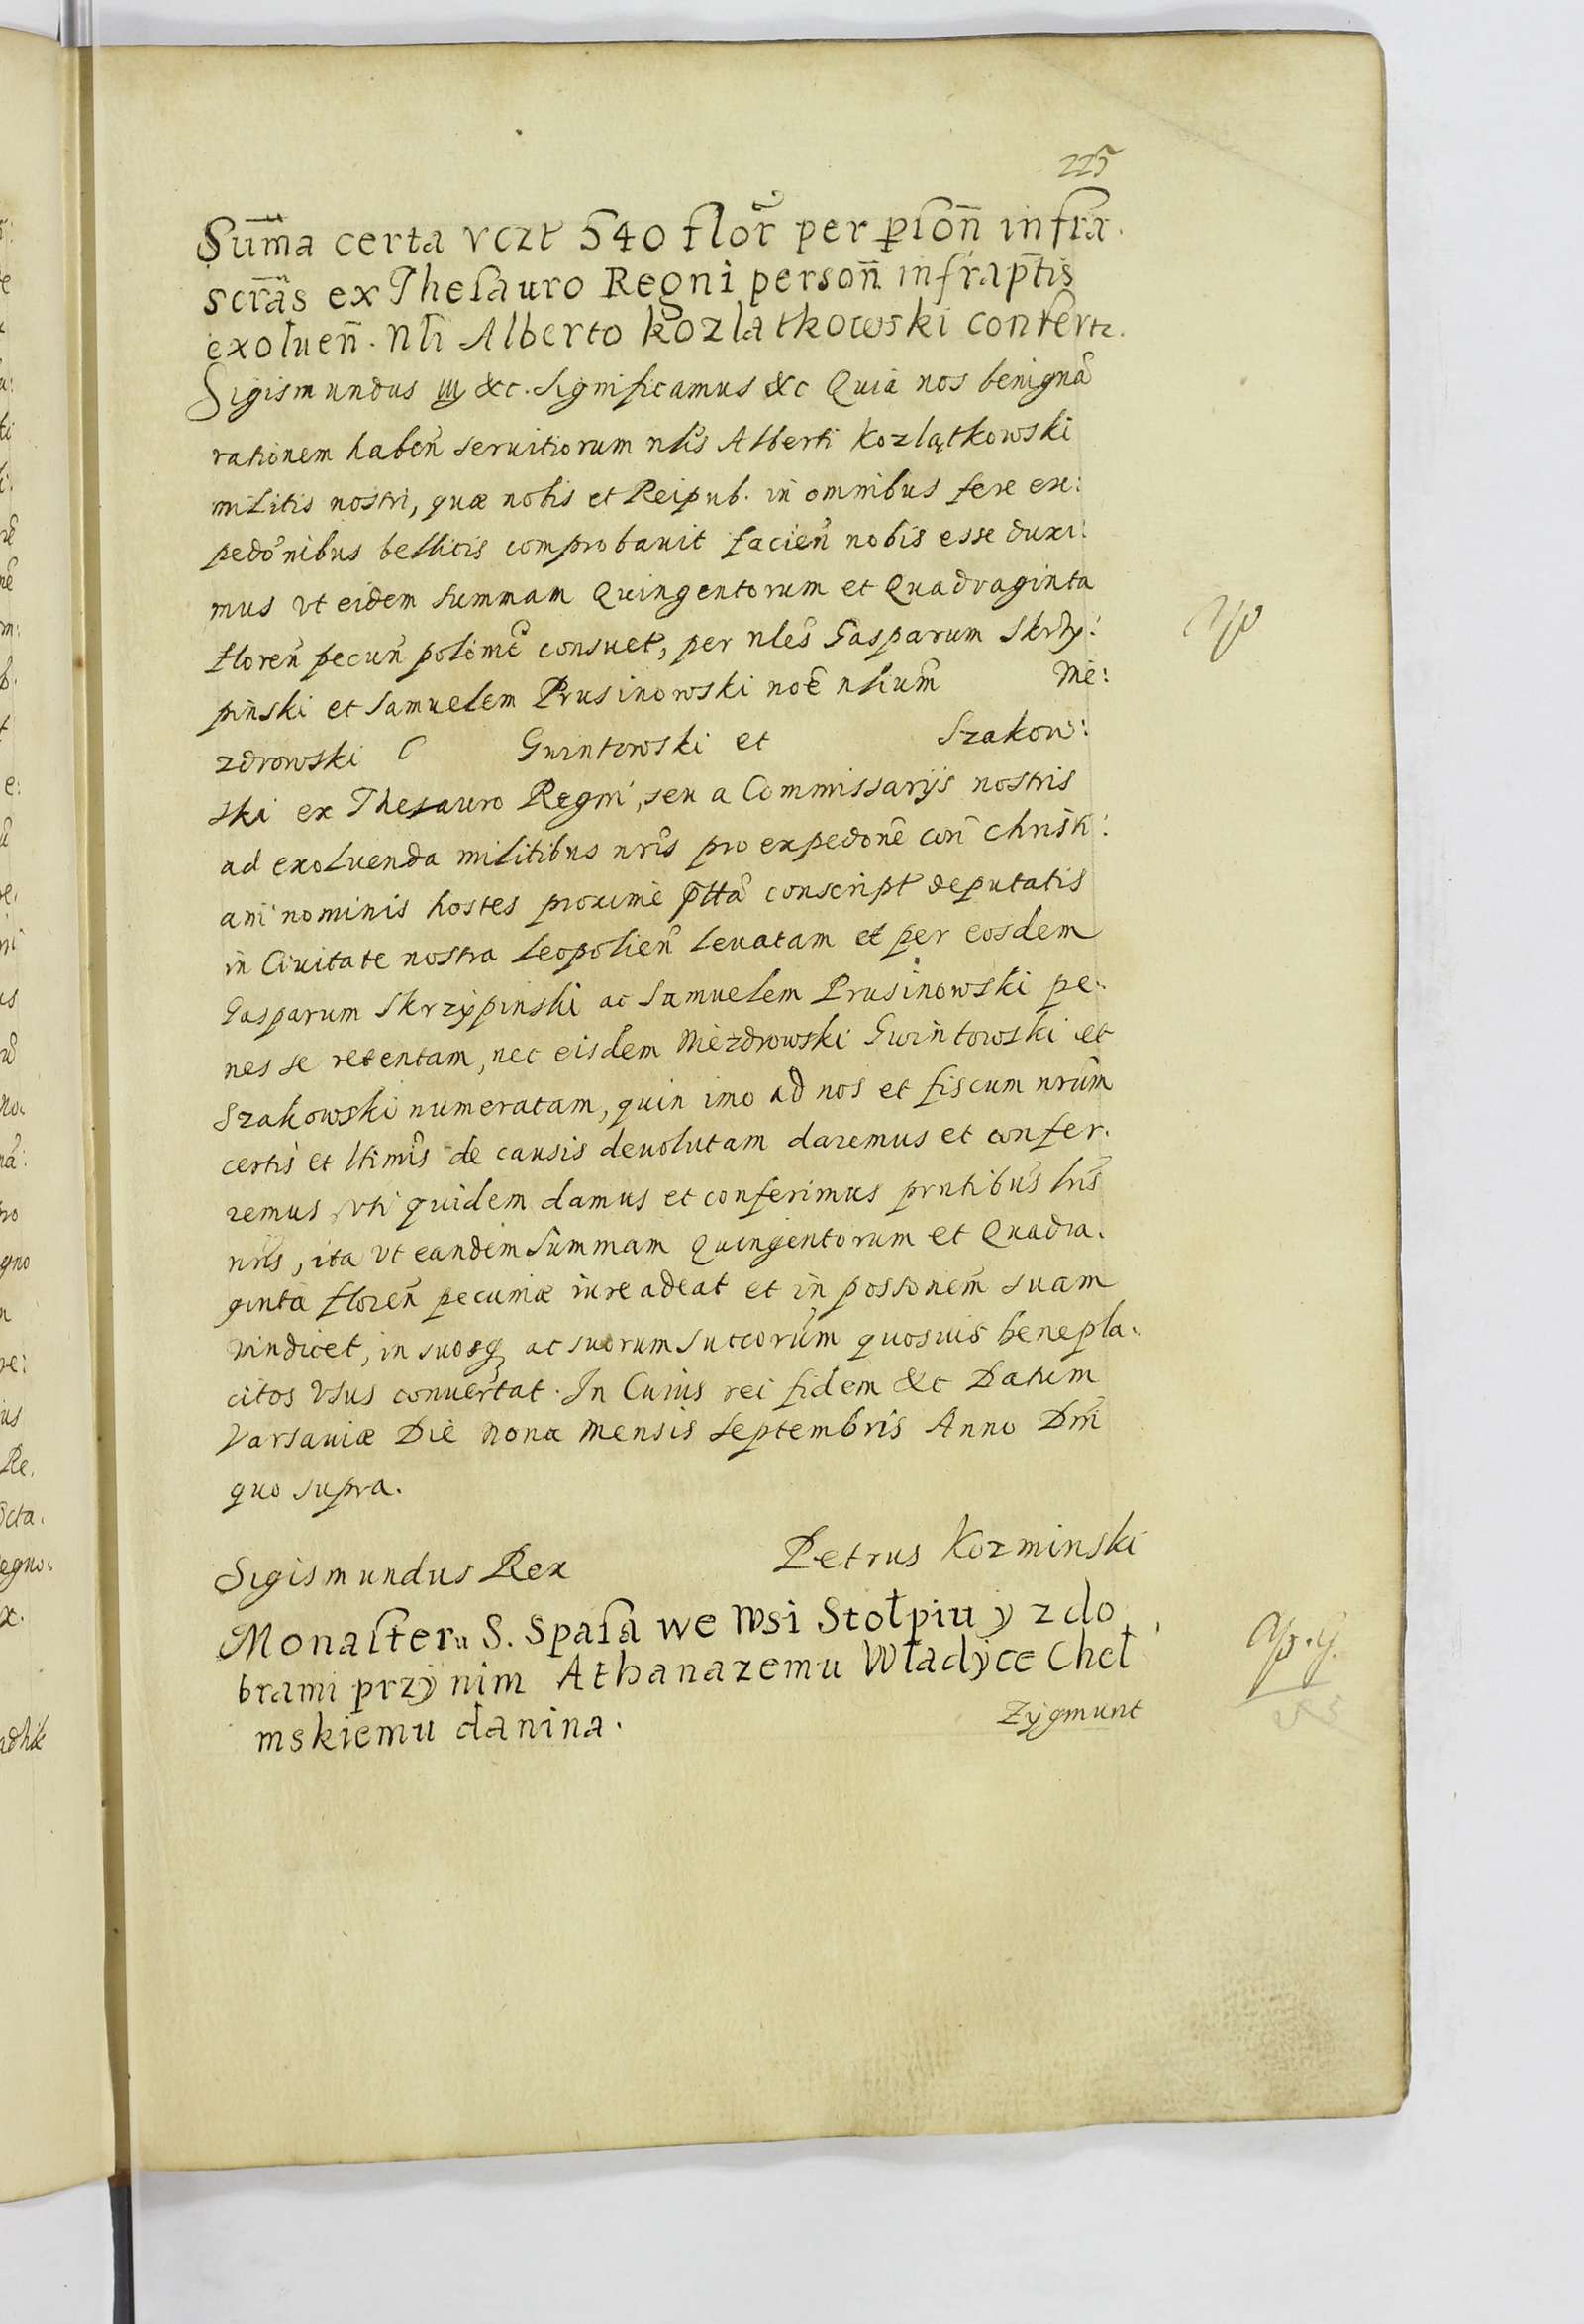 225
Sum̃a certa vczt 540 flor̃ per p̱soñ infra.
scr̃as ex Thesauro Regni persoñ infrap̃tis
exoluen̄. Nl̃i Alberto Kozlatkowski confertr.
Sigismundus III &c. Significamus &c Quia nos benignã
rationem habeñ seruitiorum nl̃is Alberti Kozlątkowski
militis nostri, quæ nobis et Reipub. in omnibus fere ex:
pedõnibus bellicis comprobauit facieñ nobis esse duxi:
mus vt eidem summam Quingentorum et Quadraginta
floreñ pecuñ polonic̃ consuet, per nl̃es Gasparum Skrzy:
pinski et Samuelem Prusinowski noẽ nl̃ium Mie:
zdrowski C Gwintowski et Szakow:
ski ex Thesauro Regni, seu a Commissarijs nostris
ad exoluenda militibus nr̃is pro expedonẽ con̄ christi:
ani nominis hostes proxime p̃ttã conscript deputatis
in Ciuitate nostra Leopolieñ leuatam et per eosdem
Gasparum Skrzypinski ac Samuelem Prusinowski pe:
nes se retentam, nec eisdem Miezdrowski Gwintowski et
Szakowski numeratam, quin imo ad nos et fiscum nrũm
certis et ltimĩs de causis deuolutam daremus et confer:
remus, vti quidem damus et conferimus prntibus̃ lrĩs
nrĩs, ita vt eandem Summam Quingentorum et Quadra:
ginta floreñ pecuniæ iure adeat et in possonem̃ suam
vindicet, in suosq̃ ac suorum succorũm quosuis benepla:
citos vsus conuertat. In Cuius rei fidem &c Datum
Varsauiæ Die nona mensis Septembris Anno Dnĩ
quo supra.
Sigismundus Rex Petrus Kozminski
Monasteru S. Spasa we Wsi Stołpiu y z do
brami przy nim Athanazemu Władyce Cheł
mskiemu danina.
Zygmunt